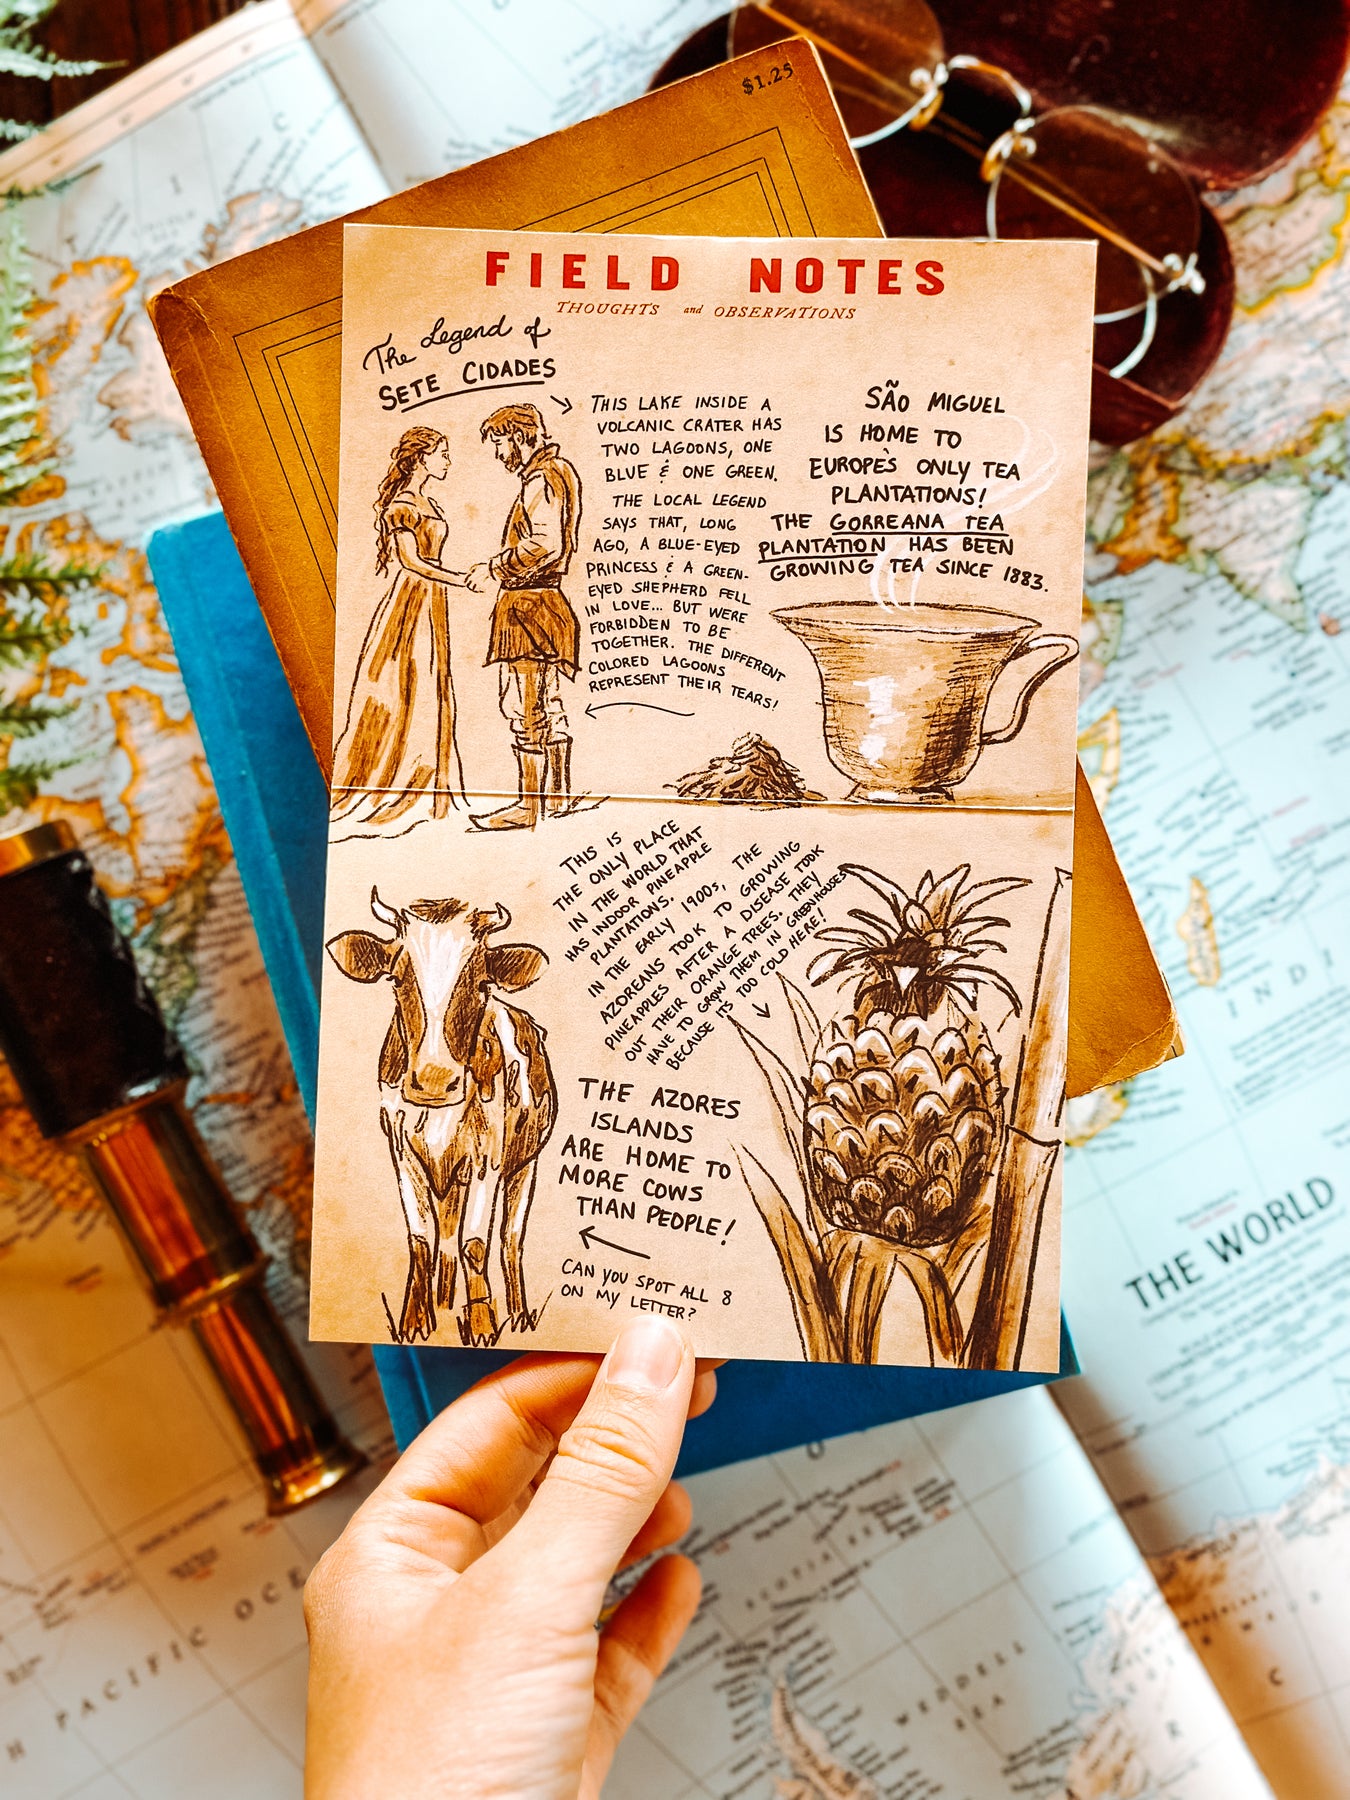 $1.25
FIELD NOTES
THOUGHTS and OBSERVATIONS
The Legend of
SETE CIDADES
THIS LAKE INSIDE A
VOLCANIC CRATER HAS
TWO LAGOONS, ONE
BLUE & ONE GREEN.
THE LOCAL LEGEND
SAYS THAT, LONG
AGO, A BLUE-EYED
PRINCESS & A GREEN-
EYED SHEPHERD FELL
IN LOVE... BUT WERE
FORBIDDEN TO BE
TOGETHER. THE DIFFERENT
COLORED LAGOONS
REPRESENT THEIR TEARS!
SÃO MIGUEL
IS HOME TO
EUROPE'S ONLY TEA
PLANTATIONS!
THE GORREANA TEA
PLANTATION HAS BEEN
GROWING TEA SINCE 1883.
THIS IS
THE ONLY PLACE
IN THE WORLD THAT
HAS INDOOR PINEAPPLE
PLANTATIONS.
IN THE EARLY 1900s, THE
AZOREANS TOOK TO GROWING
PINEAPPLES AFTER A DISEASE TOOK
OUT THEIR ORANGE TREES. THEY
HAVE TO GROW THEM IN GREENHOUSES
BECAUSE IT'S TOO COLD HERE!
THE AZORES
ISLANDS
ARE HOME TO
MORE COWS
THAN PEOPLE!
CAN YOU SPOT ALL 8
ON MY LETTER?
THE WORLD
INDI
PACIFIC OCE
SCOTIA
WEDDELL
SEA